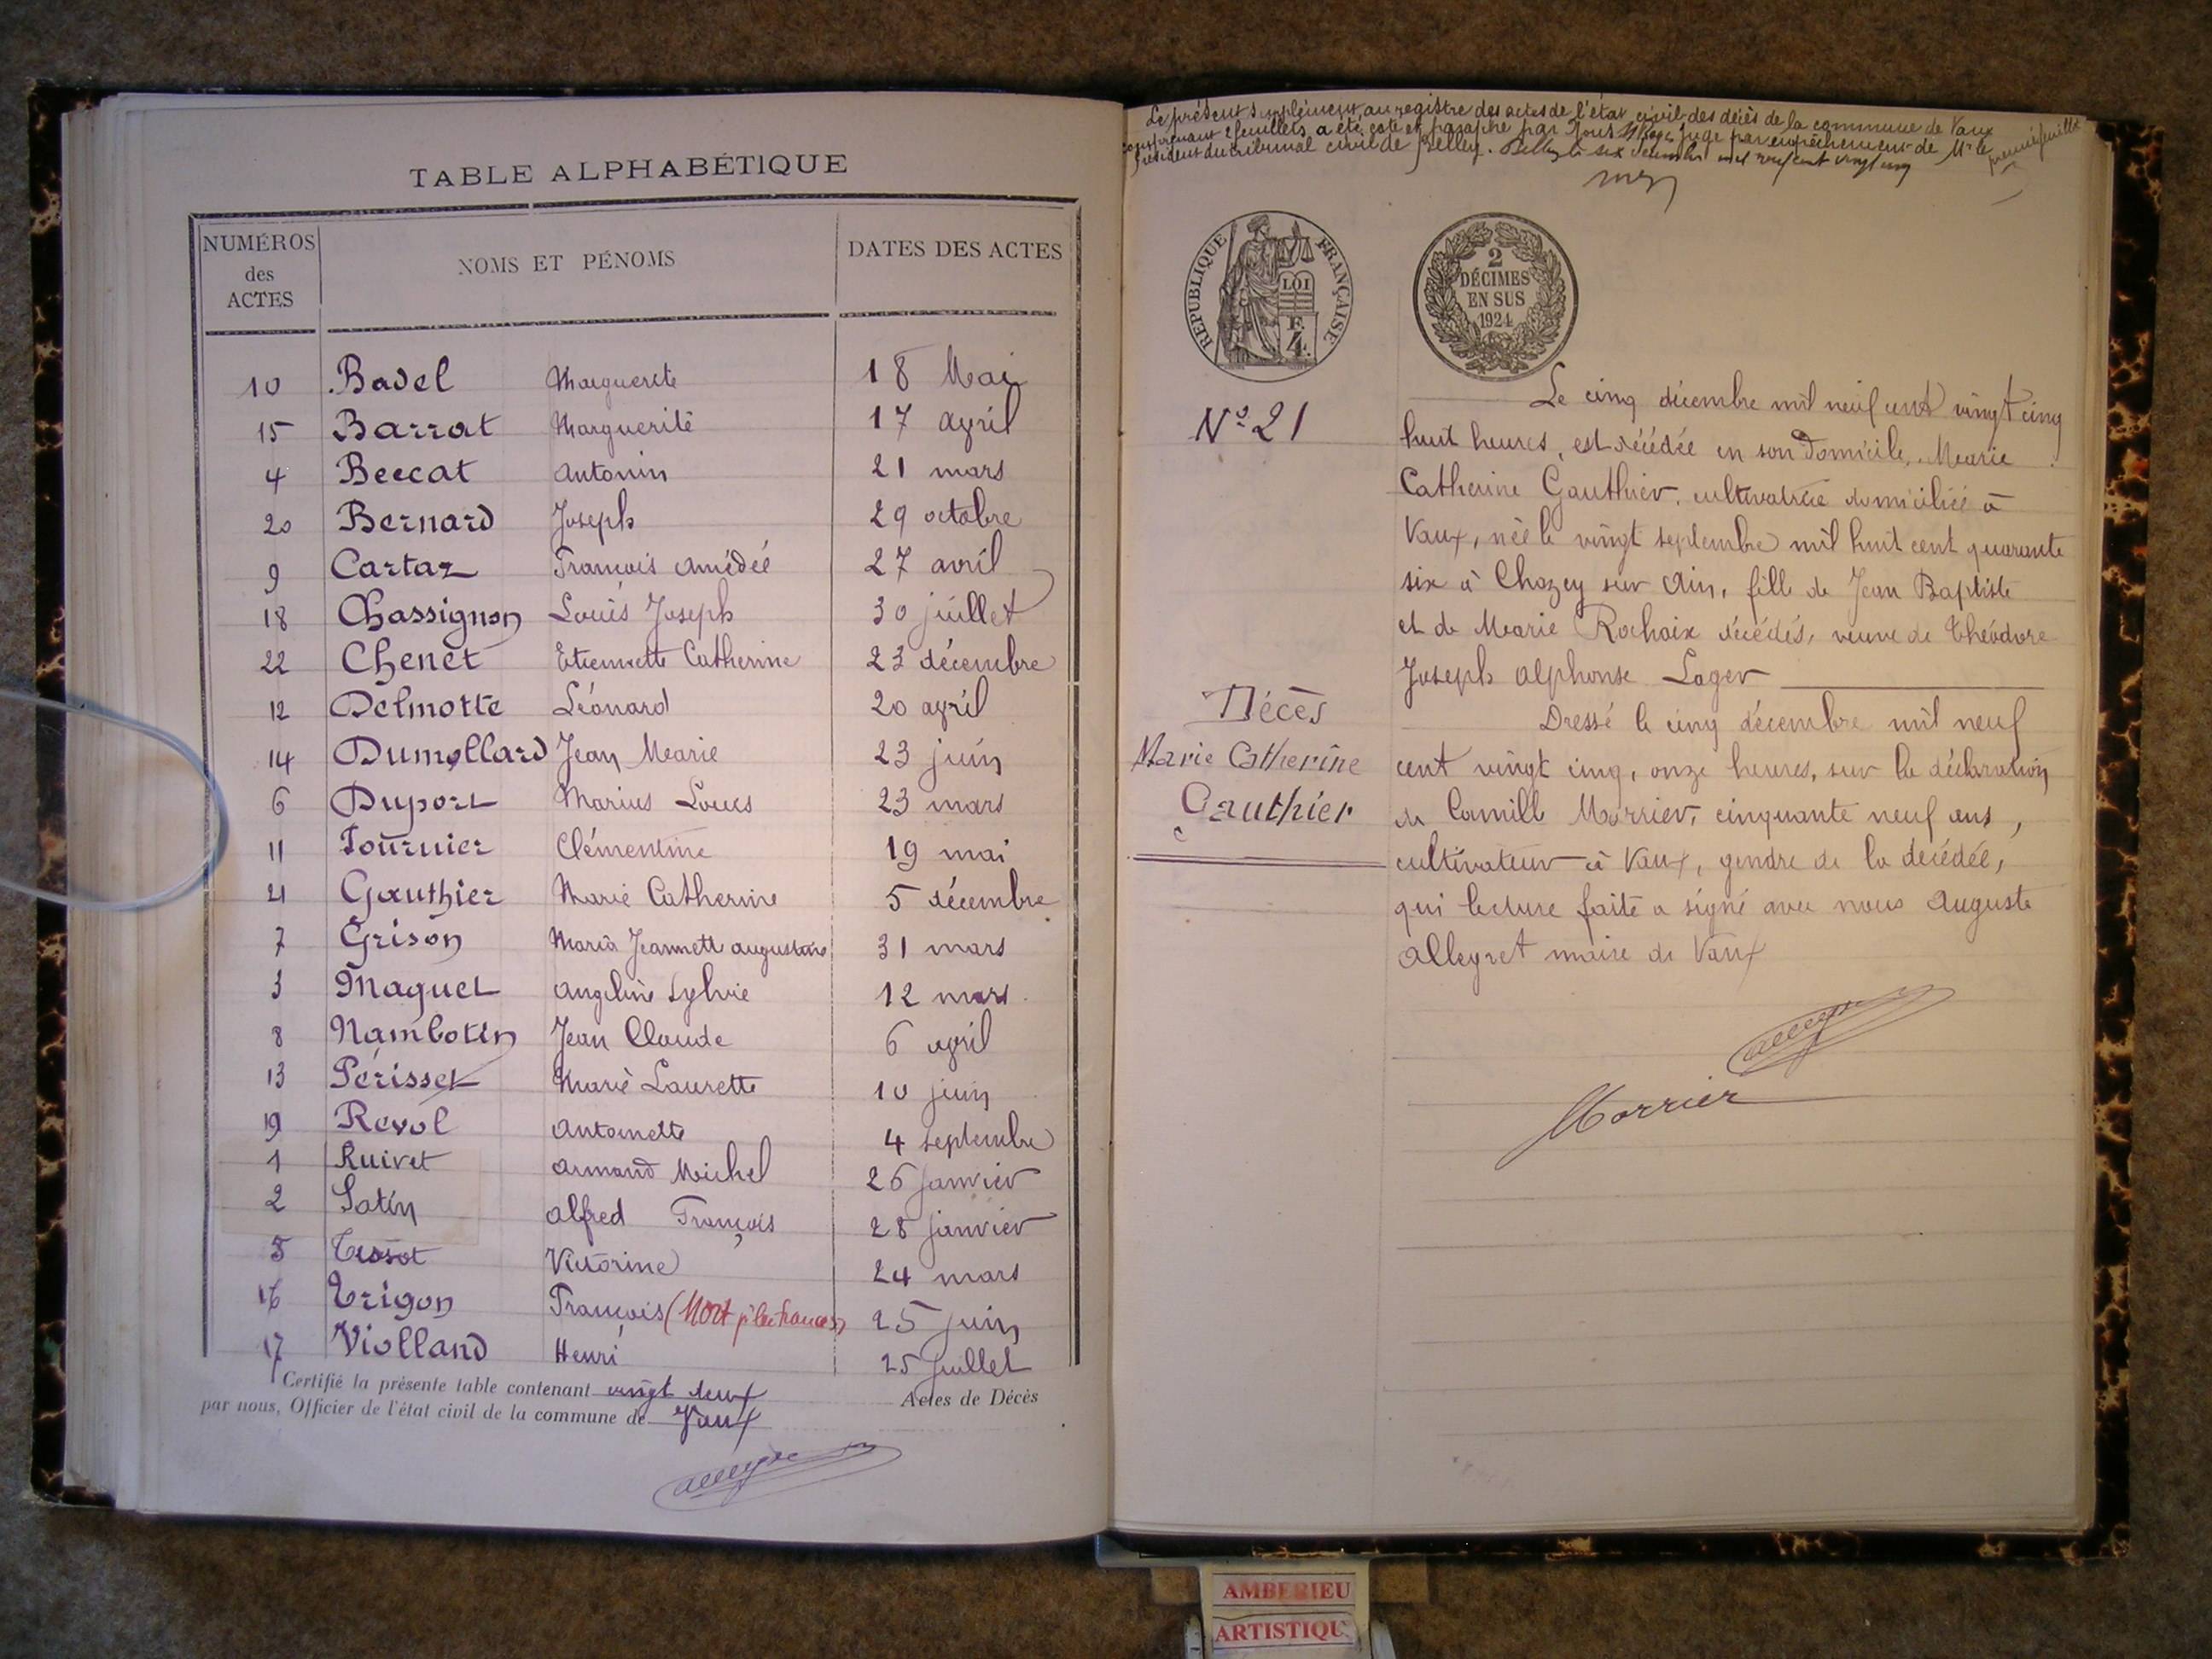 TABLE ALPHABÉTIQUE
NUMÉROS des ACTES NOMS ET PÉNOMS DATES DES ACTES
10 Badel Marguerite 18 Mai
15 Barrat Marguerite 17 avril
4 Beccat Antonin 21 mars
20 Bernard Joseph 29 octobre
9 Cartaz François Amédée 27 avril
18 Chassignon Louis Joseph 30 juillet
22 Chenet Etiennette Catherine 23 décembre
12 Delmotte Léonard 20 avril
14 Dumollard Jean Marie 23 juin
6 Duport Marius Louis 23 mars
11 Fournier Clémentine 19 mai
21 Gauthier Marie Catherine 5 décembre
7 Grison Maria Jeannette augustine 31 mars
3 Maguet Angeline Sylvie 12 mars
8 Nambotin Jean Claude 6 avril
13 Périsset Marie Laurette 10 juin
19 Revol Antoinette 4 septembre
1 Ruivet Armand Michel 26 janvier
2 Satin Alfred François 28 janvier
5 Tissot Victorine 24 mars
16 Trigon François (Mort p. la france) 25 juin
17 Violland Henri 25 juillet
Certifié la présente table contenant vingt deux Actes de Décès
par nous, Officier de l'état civil de la commune de Vaux
Le présent supplément au registre des actes de l'état civil des décès de la commune de Vaux
comprenant 2 feuillets a été coté et paraphé par Nous Juge par empêchement de Mr le
Président du tribunal civil de Belley. Belley le six décembre mil neuf cent vingt cinq
premier feuillet
REPUBLIQUE FRANÇAISE
LOI
2 DÉCIMES EN SUS 1924
N° 21
Le cinq décembre mil neuf cent vingt cinq
huit heures, est décédée en son domicile, Marie
Catherine Gauthier, cultivatrice domiciliée à
Vaux, née le vingt septembre mil huit cent quarante
six à Chazey sur Ain, fille de Jean Baptiste
et de Marie Rochaix décédés, veuve de Théodore
Joseph Alphonse Lager
Décès
Marie Catherine
Gauthier
Dressé le cinq décembre mil neuf
cent vingt cinq, onze heures, sur la déclaration
de Camille Morrier, cinquante neuf ans,
cultivateur à Vaux, gendre de la décédée,
qui lecture faite a signé avec nous Auguste
Alleyret maire de Vaux
Morrier
AMBERIEU
ARTISTIQU